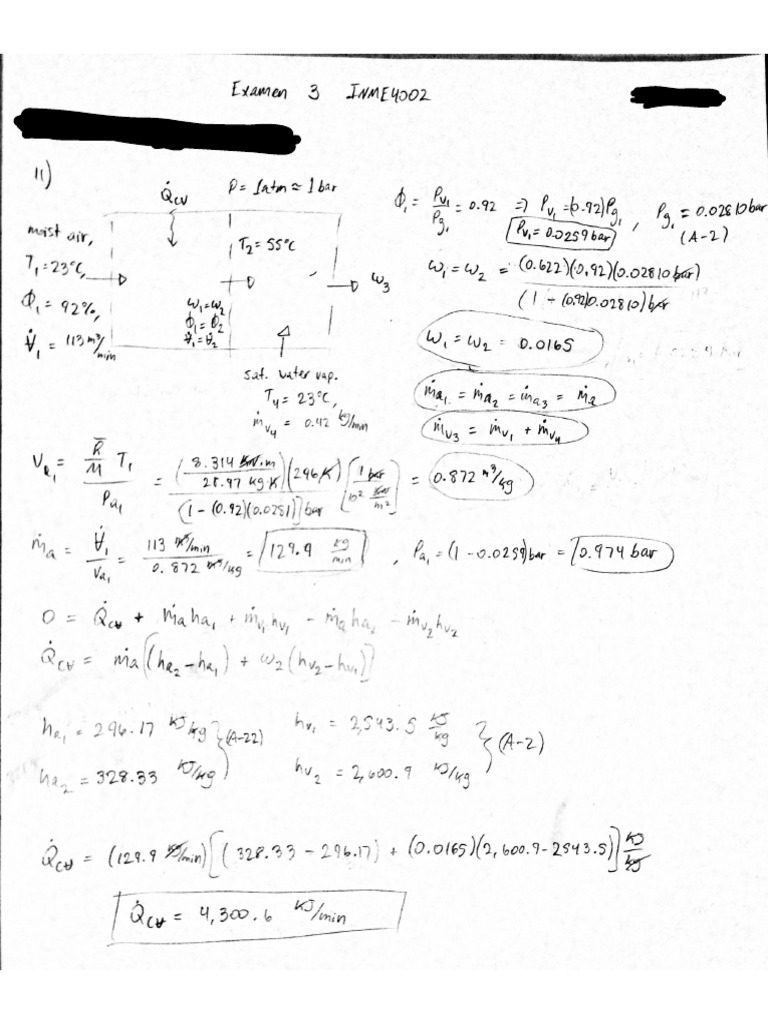 Examen 3 INME4002
11)
Q̇cv
P = 1atm ≈ 1 bar
moist air,
T₁ = 23°C,
ϕ₁ = 92%,
V̇₁ = 113 m³/min
T₂ = 55°C
ω₁ = ω₂
ϕ₁ = ϕ₂
V̇₁ = V̇₂
ω₃
sat. water vap.
T₄ = 23°C,
ṁv₄ = 0.42 kg/min
ϕ₁ = Pv₁/Pg₁ = 0.92 ⇒ Pv₁ = (0.92)Pg₁, Pg₁ = 0.02810 bar
Pv₁ = 0.0259 bar
(A-2)
ω₁ = ω₂ = (0.622)(0.92)(0.02810 bar) / (1 - (0.92)0.02810) bar
ω₁ = ω₂ = 0.0165
ṁa₁ = ṁa₂ = ṁa₃ = ṁa
ṁv₃ = ṁv₁ + ṁv₄
va₁ = (R̄/M) T₁ / Pa₁ = (8.314 kN·m / 28.97 kg·K)(296K) / [1 - (0.92)(0.0281)] bar [1 bar / 10² kN/m²] = 0.872 m³/kg
ṁa = V̇₁/va₁ = 113 m³/min / 0.872 m³/kg = 129.9 kg/min, Pa₁ = (1 - 0.0259) bar = 0.974 bar
0 = Q̇cv + ṁa ha₁ + ṁv₁hv₁ - ṁa ha₂ - ṁv₂hv₂
Q̇cv = ṁa[(ha₂ - ha₁) + ω₂(hv₂ - hv₁)]
ha₁ = 296.17 kJ/kg
ha₂ = 328.33 kJ/kg
(A-22)
hv₁ = 2,543.5 kJ/kg
hv₂ = 2,600.9 kJ/kg
(A-2)
Q̇cv = (129.9 kg/min)[(328.33 - 296.17) + (0.0165)(2,600.9 - 2543.5)] kJ/kg
Q̇cv = 4,300.6 kJ/min